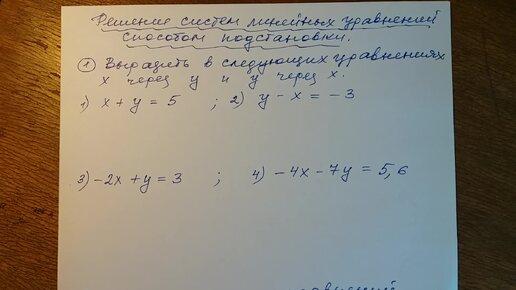 Решение систем линейных уравнений
способом подстановки.
① Выразить в следующих уравнениях
x через y и y через x.
1) x + y = 5 ; 2) y - x = -3
3) -2x + y = 3 ; 4) -4x - 7y = 5,6